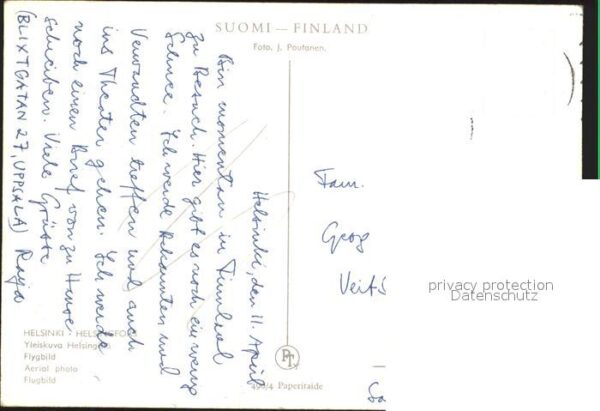 SUOMI — FINLAND
Foto. J. Poutanen.
Helsinki, den 11. April
Bin momentan in Finnland
zu Besuch. Hier gibt es noch ein wenig
Schnee. Ich werde Bekannten und
Verwandten treffen und auch
ins Theater gehen. Ich werde
noch einen Brief von zu Hause
schreiben. Viele Grüsse
Raija
(BLIXTGATAN 27, UPPSALA)
Fam.
Georg
Veits
privacy protection
Datenschutz
HELSINKI • HELSINGFORS
Yleiskuva Helsingistä
Flygbild
Aerial photo
Flugbild
PT
490/4 Paperitaide